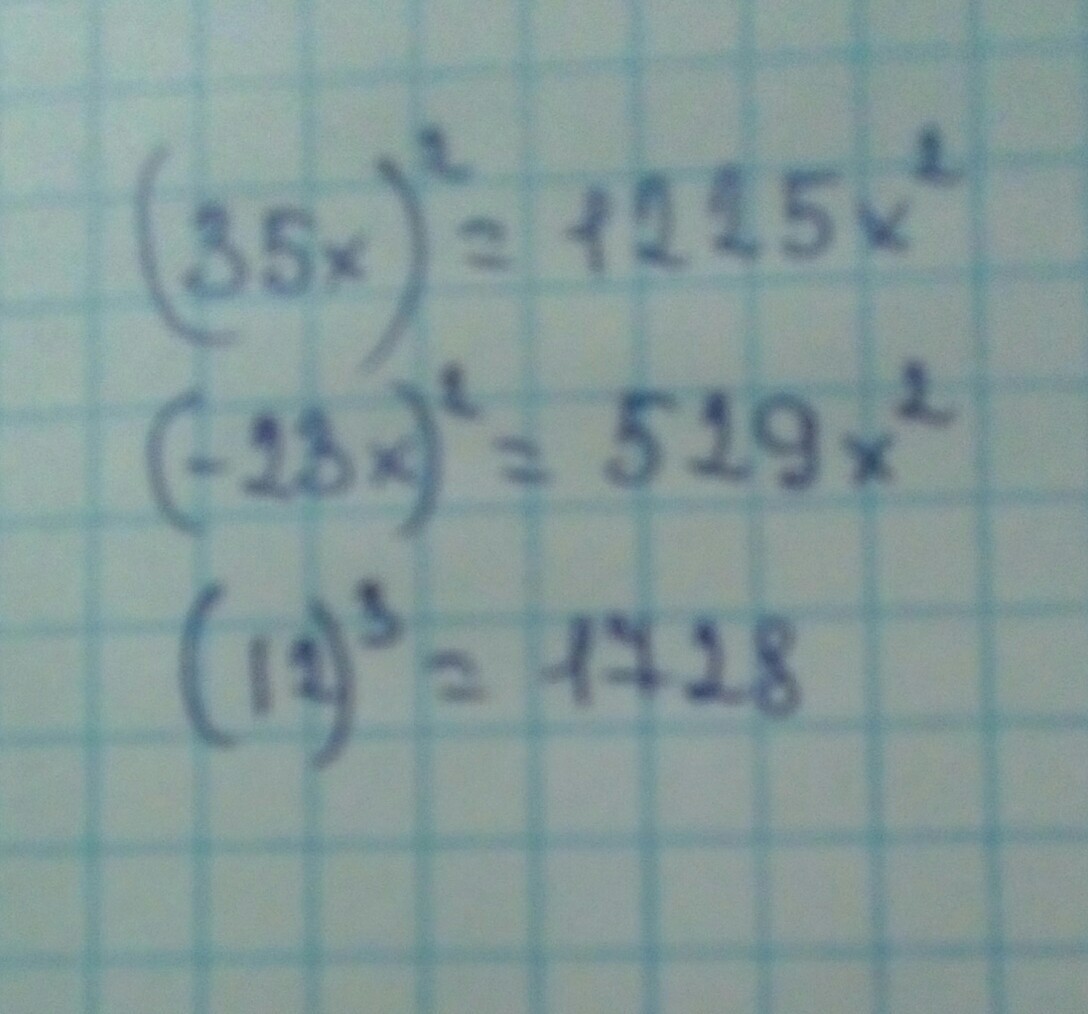 (35x)² = 1225x²
(-23x)² = 529x²
(12)³ = 1728